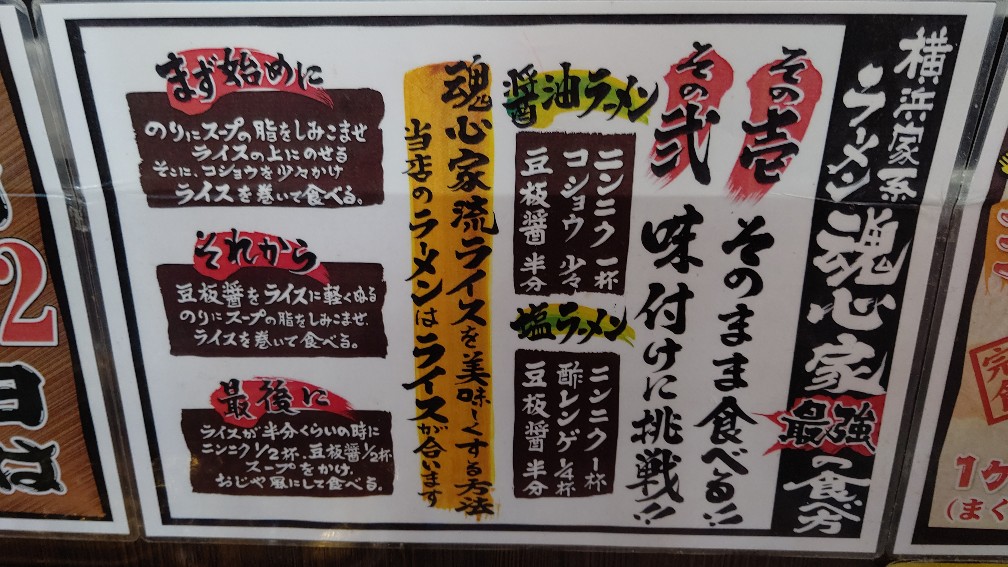 横浜家系
ラーメン魂心家最強の食べ方
その壱 そのまま食べる!!
その弐 味付けに挑戦!!
醤油ラーメン
ニンニク 一杯
コショウ 少々
豆板醤 半分
塩ラーメン
ニンニク 一杯
酢レンゲ 1/4杯
豆板醤 半分
魂心家流ライスを美味しくする方法
当店のラーメンはライスが合います
まず始めに
のりにスープの脂をしみこませ
ライスの上にのせる
そこに、コショウを少々かけ
ライスを巻いて食べる。
それから
豆板醤をライスに軽くぬる
のりにスープの脂をしみこませ、
ライスを巻いて食べる。
最後に
ライスが半分くらいの時に
ニンニク1/2杯、豆板醤1/2杯
スープをかけ、
おじや風にして食べる。
2
日
は
完
1ケ
(まく